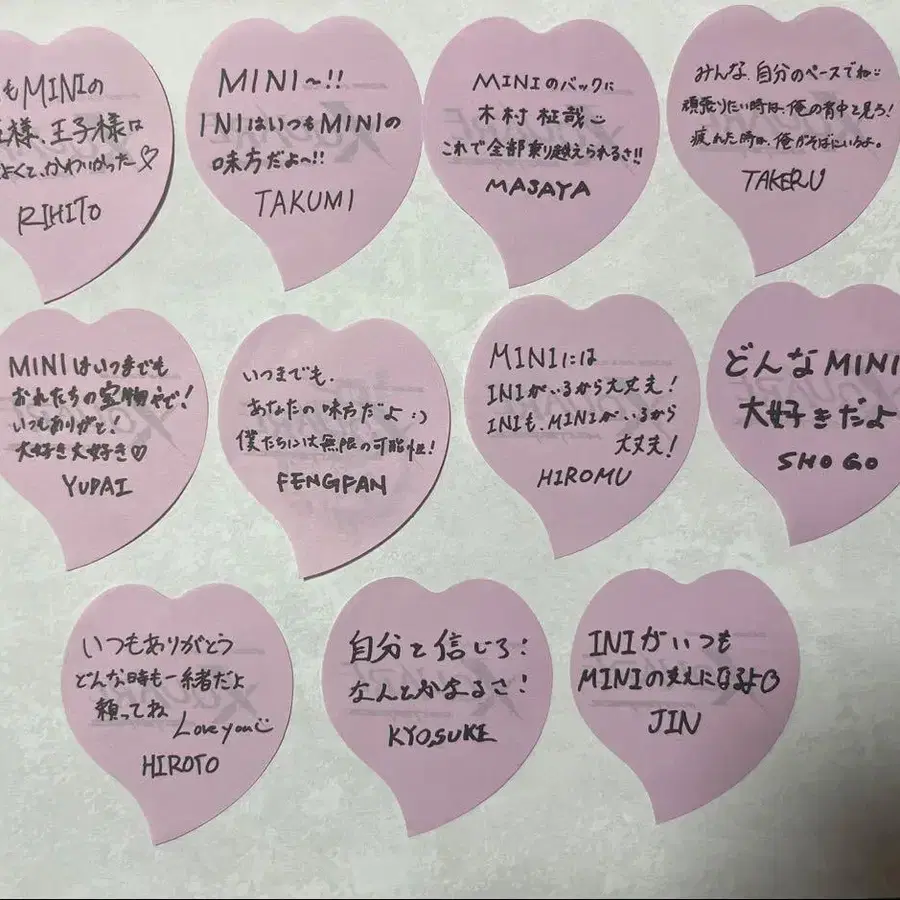 もMINIの
様、王子様は
よくて、かわいかった♡
RIHITO
MINI〜!!
INIはいつもMINIの
味方だよ〜!!
TAKUMI
MINIのバックに
木村柾哉
これで全部乗り越えられるさ!!
MASAYA
みんな、自分のペースでね
頑張りたい時は、俺の背中を見ろ!
疲れた時は、俺がそばにいるよ。
TAKERU
MINIはいつまでも
おれたちの宝物やで!
いつもありがと!
大好き大好き♡
YUDAI
いつまでも、
あなたの味方だよ :)
僕たちには無限の可能性!
FENGFAN
MINIには
INIがいるから大丈夫!
INIも、MINIがいるから
大丈夫!
HIROMU
どんなMINI
大好きだよ
SHOGO
いつもありがとう
どんな時も一緒だよ
頼ってね
Love you
HIROTO
自分を信じろ!
なんとかなるさ!
KYOSUKE
INIがいつも
MINIの支えになるよ♡
JIN